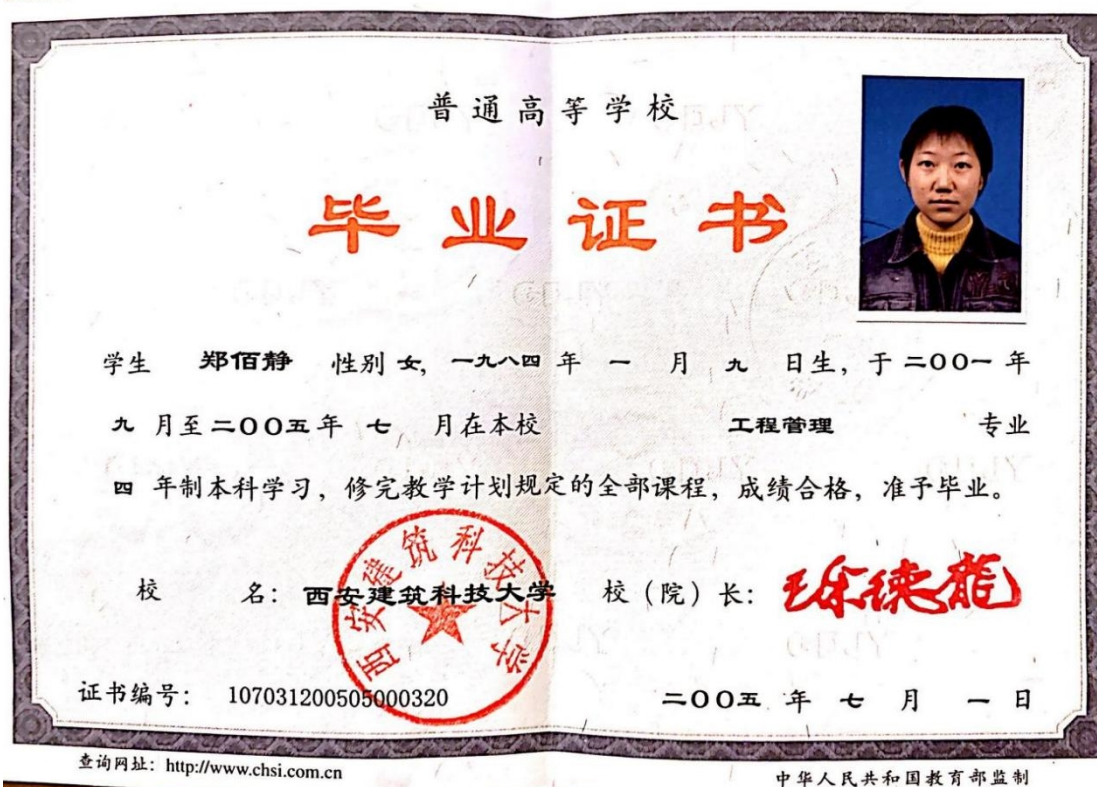 普通高等学校
毕业证书
学生 郑佰静 性别 女, 一九八四 年 一 月 九 日生, 于 二〇〇一 年
九 月至 二〇〇五 年 七 月在本校 工程管理 专业
四 年制本科学习, 修完教学计划规定的全部课程, 成绩合格, 准予毕业。
校 名: 西安建筑科技大学 校 (院) 长: 徐德龙
西安建筑科技大学
证书编号: 107031200505000320 二〇〇五 年 七 月 一 日
查询网址: http://www.chsi.com.cn 中华人民共和国教育部监制